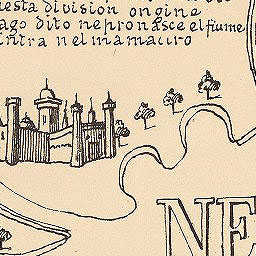 uesta division origine
ago dito nepronasce el fiume
intra nel mamauro
NE